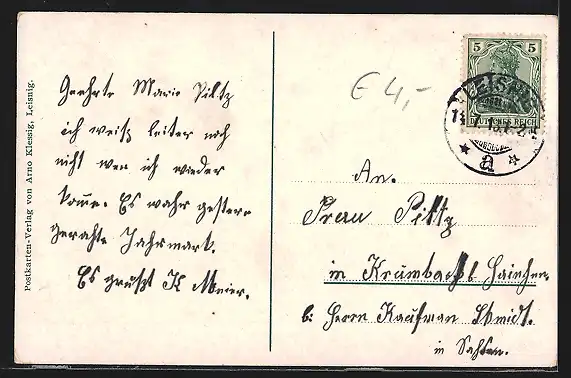 Postkarten-Verlag von Arno Klessig, Leisnig.
Geehrte Marie Piltz
ich weiß leiter noch
nicht wen ich wieder
komme. Es wahr gestern
gerahte Jahrmarkt.
Es grußt K Meier.
€ 4,-
5 5
DEUTSCHES REICH
LEISNIG
* a *
An.
Frau Piltz
in Krumbach b. Hainchen
b: Herrn Kaufman Schmidt.
in Sachsen.